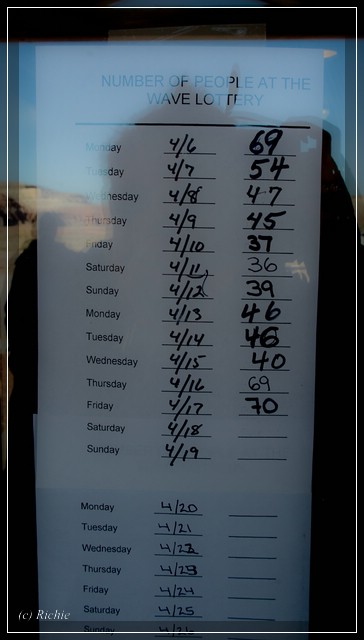 NUMBER OF PEOPLE AT THE
WAVE LOTTERY
Monday 4/6 69
Tuesday 4/7 54
Wednesday 4/8 47
Thursday 4/9 45
Friday 4/10 37
Saturday 4/11 36
Sunday 4/12 39
Monday 4/13 46
Tuesday 4/14 46
Wednesday 4/15 40
Thursday 4/16 69
Friday 4/17 70
Saturday 4/18
Sunday 4/19
Monday 4/20
Tuesday 4/21
Wednesday 4/22
Thursday 4/23
Friday 4/24
Saturday 4/25
Sunday 4/26
(c) Richie